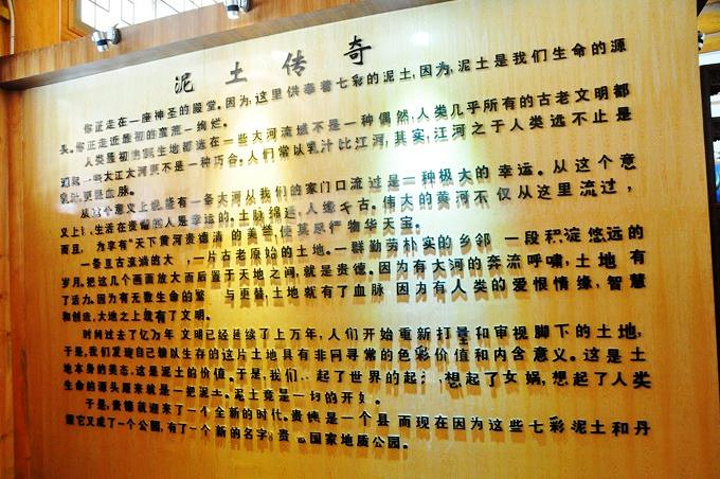 泥土传奇
你正走在一座神圣的殿堂。因为,这里供奉着七彩的泥土,因为,泥土是我们生命的源
头。你正走近最初的蛮荒一绚烂。
人类最初出诞生地都选在一些大河流域不是一种偶然,人类几乎所有的古老文明都
一些大江大河更不是一种巧合。人们常以乳汁比江河,其实,江河之于人类远不止是
乳汁,更是血脉。
从这个意义上说,能有一条大河从我们的家门口流过是一种极大的幸运。从这个意
义上,生活在贵德的人是幸运的。土脉绵延,人缘千古。伟大的黄河不仅从这里流过,
而且,为享有"天下黄河贵德清的美誉,使其尽物华天宝。
一条亘古流淌的大,一片古老原始的土地。一群勤劳朴实的乡邻一段积淀悠远的
岁月。把这几个画面放大而后置于天地之间,就是贵德。因为有大河的奔流呼啸,土地有
了活力。因为有无数生命的繁与更替,土地就有了血脉因为有人类的爱恨情缘,智慧
和创造,大地之上就有了文明。
时间过去了亿万年文明已经延续了上万年,人们开始重新打量和审视脚下的土地,
于是,我们发现自己赖以生存的这片土地具有非同寻常的色彩价值和内含意义。这是土
地本身的美态,这是泥土的价值。于是,我们起了世界的起,想起了女娲,想起了人类
生命的源头原来就是一把泥土。泥土竟是一切的开始。
于是,贵德就迎来了一个全新的时代。贵德是一个县而现在因为这些七彩泥土和丹
霞它又成了一个公园,有了一个新的名字:贵国家地质公园。